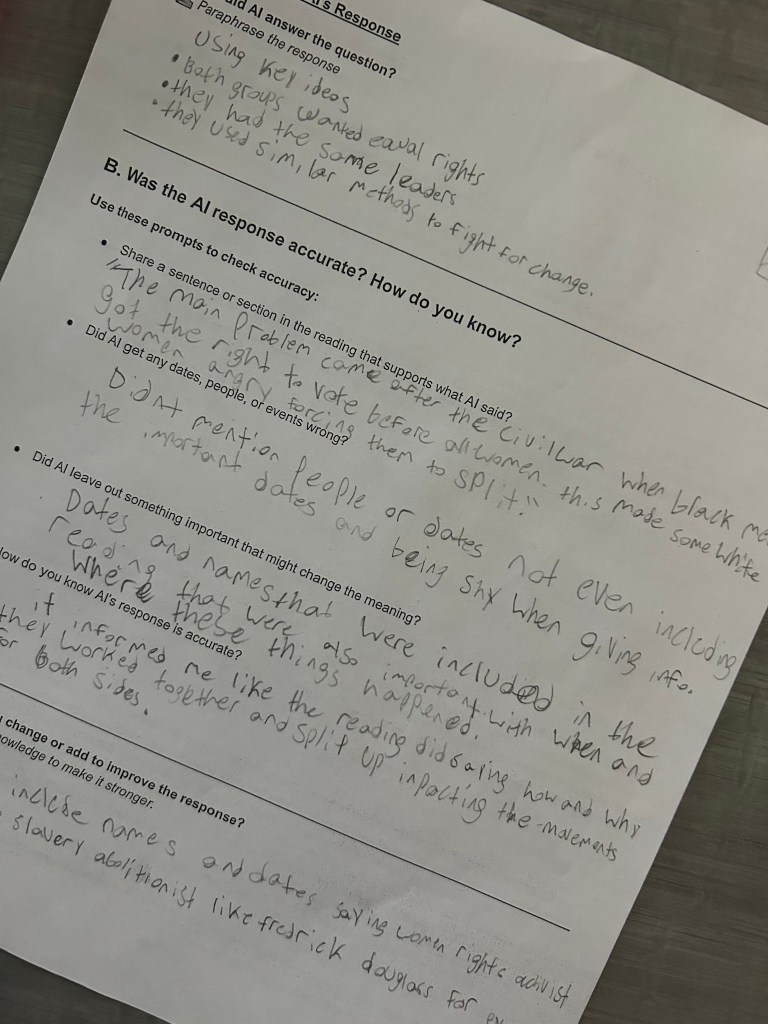 AI's Response
did AI answer the question?
Paraphrase the response
Using key ideas
• Both groups wanted equal rights
• they had the same leaders
• they used similar methods to fight for change.
B. Was the AI response accurate? How do you know?
Use these prompts to check accuracy:
• Share a sentence or section in the reading that supports what AI said?
"The main problem came after the civil war when black me
got the right to vote before all women. this made some white
women angry forcing them to split."
• Did AI get any dates, people, or events wrong?
Didnt mention people or dates not even including
the important dates and being shy when giving info.
• Did AI leave out something important that might change the meaning?
Dates and names that were included in the
reading that were also important with when and
where these things happened.
How do you know AI's response is accurate?
it informed me like the reading did saying how and why
they worked together and split up inpacting the movements
for both sides.
change or add to improve the response?
owledge to make it stronger.
include names and dates saying women rights activist
slavery abolitionist like fredrick douglass for ex